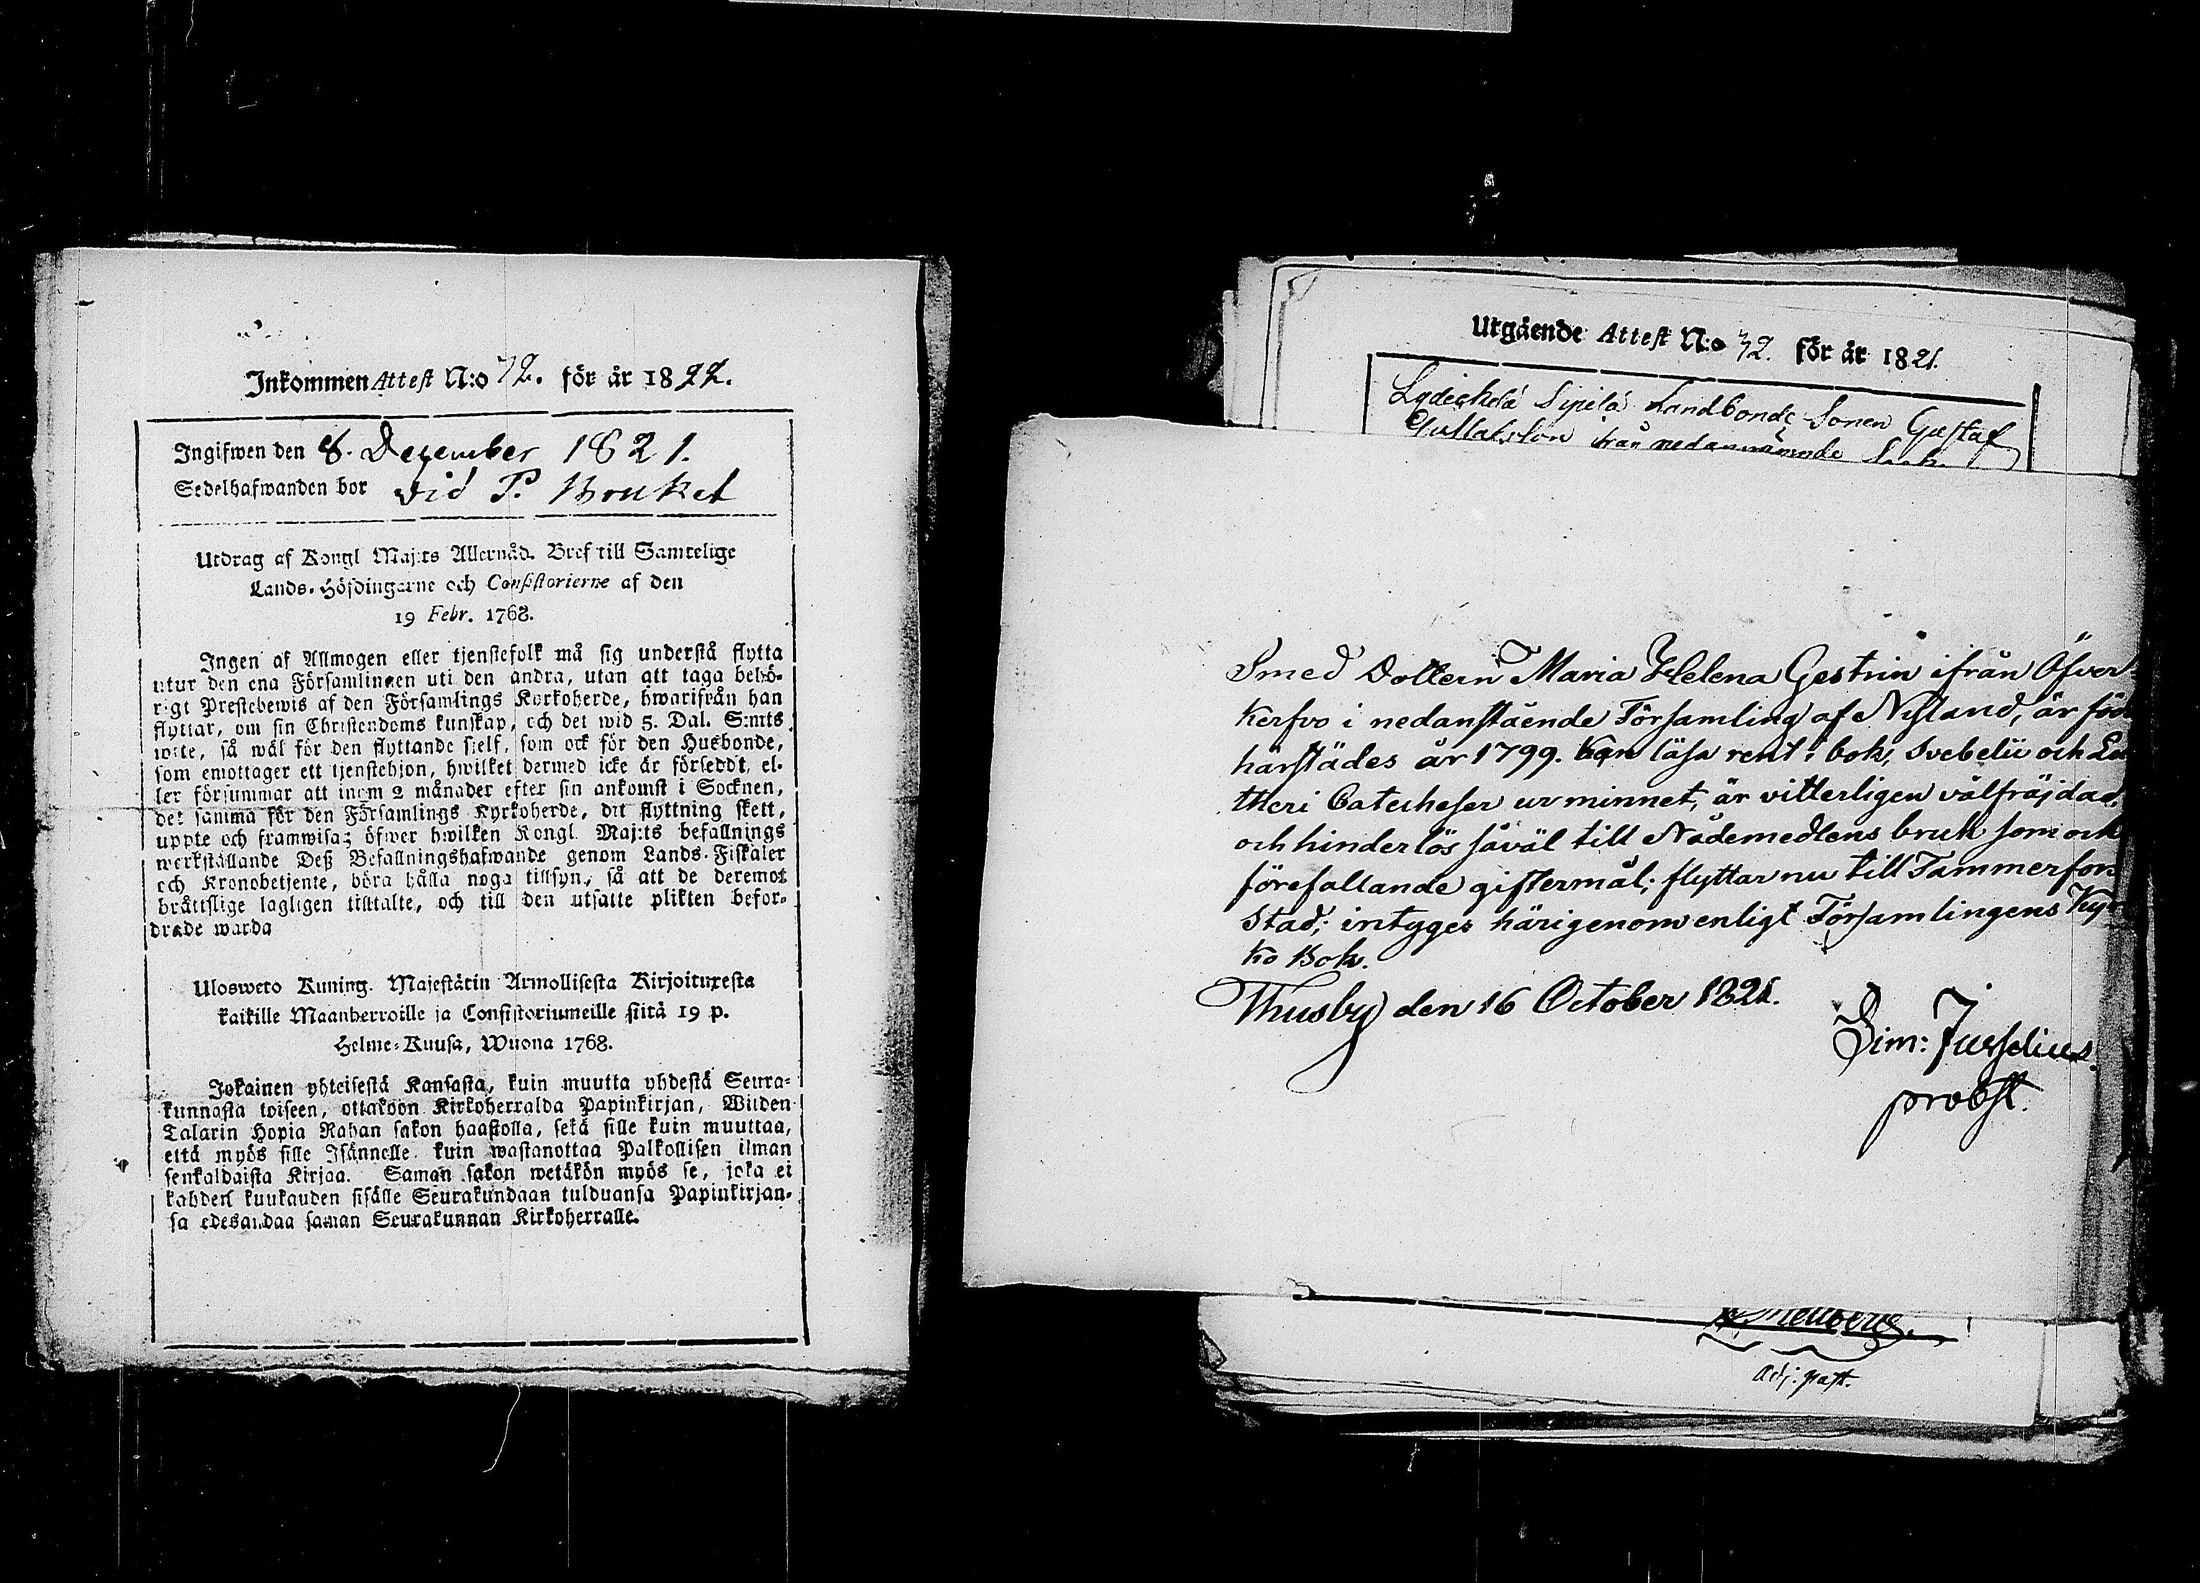 Inkommen Attest N:o 72. för år 1822.
Ingifwen den 8. December 1821.
Sedelhafwanden bor vid P. Bruket
Utdrag af Kongl Maj:ts Allernåd. Bref till Samtelige
Lands-Höfdingarne och Consistorierne af den
19 Febr. 1768.
Ingen af Allmogen eller tjenstefolk må sig understå flytta
utur den ena Församlingen uti den andra, utan att taga behö-
rigt Prestebewis af den Församlings Kyrkoherde, hwarifrån han
flyttar, om sin Christendoms kunskap, och det wid 5. Dal. S:mts
wite, så wäl för den flyttande sjelf, som ock för den Husbonde,
som emottager ett tjenstehjon, hwilket dermed icke är försedt, el-
ler försummar att inom 2 månader efter sin ankomst i Socknen,
det samma för den Församlings Kyrkoherde, dit flyttning skett,
uppte och framwisa; öfwer hwilken Kongl Maj:ts befallnings
werkställande Deß Befallningshafwande genom Lands-Fiskaler
och Kronobetjente, böra hålla noga tillsyn, så att de deremot
bråttslige lagligen tilltalte, och till den utsatte plikten befor-
drade warda
Ulosweto Kuning. Majestätin Armollisesta Kirjoituxesta
kaikille Maanherroille ja Consistoriumeille siitä 19 p.
Helme-Kuusa, Wuona 1768.
Jokainen yhteisestä Kansasta, kuin muutta yhdestä Seura-
kunnasta toiseen, ottakoon Kirkoherralda Papinkirjan, Wiiden
Talarin Hopia Rahan sakon haastolla, sekä sille kuin muuttaa,
että myös sille Isännelle kuin wastanottaa Palkollisen ilman
senkaldaista Kirjaa. Saman sakon wetäkön myös se, joka ei
kahden kuukauden sisälle Seurakundaan tulduansa Papinkirjan-
sa edesandaa saman Seurakunnan Kirkoherralle.
Utgående Attest N:o 72. för år 1821.
Sipilä Landbonde Sonen Gustaf
Gustafsson ifrån nedannämnde
Smed Dottern Maria Helena Gestrin ifrån Öfver-
Kerfvo i nedanstående Församling af Nyland, är föd
härstädes år 1799. Kan läsa rent i bok, Svebelii och Lu
theri Catecheser ur minnet, är vitterligen välfräjdad,
och hinderlös såväl till Nådemedlens bruk som ock
förefallande giftermål; flyttar nu till Tammerfors
Stad; intyges härigenom enligt Församlingens Kyr
ko Bok.
Thusby den 16 October 1821.
Sim: Jusselius
probst.
Adj. past.